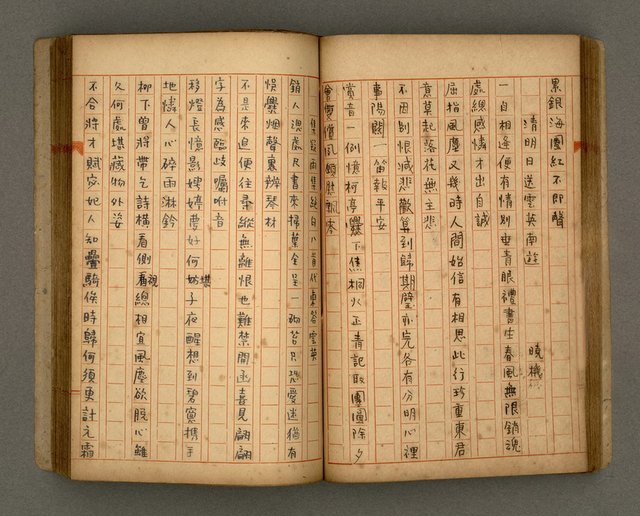 累銀海團紅不即醫
清明日送雲英南遊　曉機
一自相逢便有情別垂青眼禮書生春風無限銷魂
處總感憐才出自誠
屈指風塵又幾時人間始信有相思此行珍重東君
意莫起落花無主悲
不因別恨減悲歡算到歸期璧亦完各有分明心裡
事陽關一笛報平安
賞音一例憶柯亭爨下焦桐火正青記取團圓除夕
銷人魂處尺書來掃葉全呈一砌苔只恐愛迷猶有
悞爨烟聲裏辨琴材
不是來遲便往棄縱無離恨也難禁開函喜見翩翩
字為感臨歧囑咐音
移燈長憶影娉婷費好何妨子夜醒想到碧窻携手
地憐人心碎雨淋鈴
柳下曾將帶乞詩橫看側看總相宜風塵欲脫心離
久何處堪藏物外姿
不合將才賦客妃人知疊騎俟時歸何須更註元霜